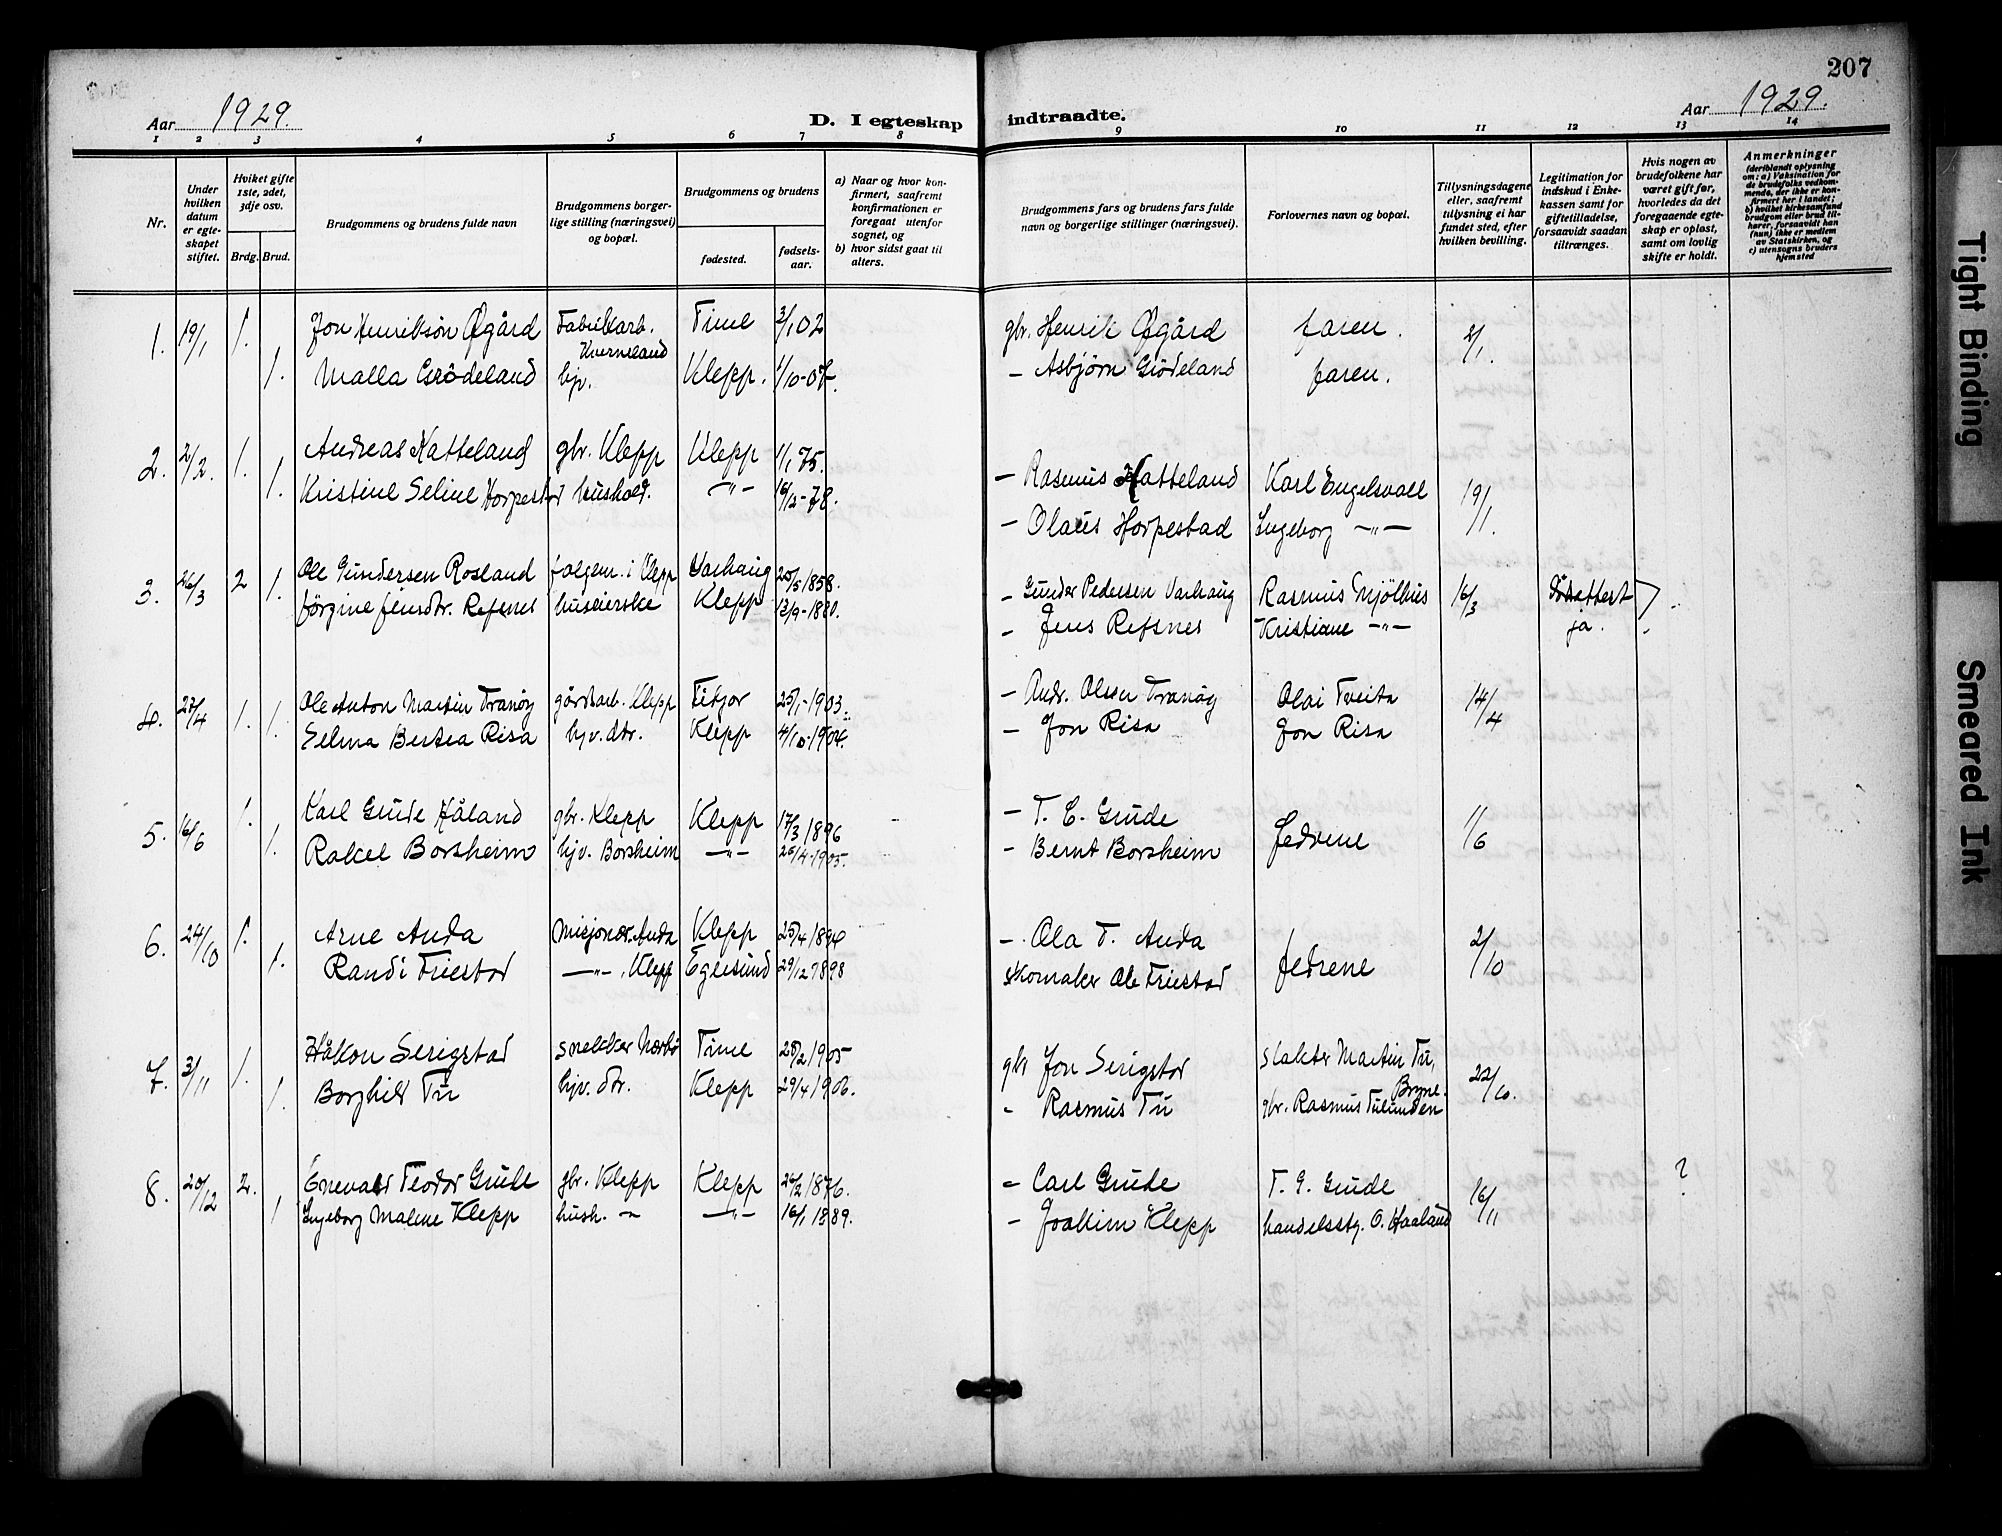 207
Aar 1929. D. I egteskap indtraadte. Aar 1929.
1 2 3 4 5 6 7 8 9 10 11 12 13 14
Nr.
Under hvilken datum er egteskapet stiftet.
Hviket gifte 1ste, 2det, 3dje osv.
Brdg. Brud.
Brudgommens og brudens fulde navn
Brudgommens borgerlige stilling (næringsvei) og bopæl.
Brudgommens og brudens
fødested.
fødselsaar.
a) Naar og hvor konfirmert, saafremt konfirmationen er foregaat utenfor sognet, og
b) hvor sidst gaat til alters.
Brudgommens fars og brudens fars fulde navn og borgerlige stillinger (næringsvei).
Forlovernes navn og bopæl.
Tillysningsdagene eller, saafremt tillysning ei har fundet sted, efter hvilken bevilling.
Legitimation for indskud i Enkekassen samt for giftetilladelse, forsaavidt saadan tiltrænges.
Hvis nogen av brudefolkene har været gift før, hvorledes da det foregaaende egteskap er opløst, samt om lovlig skifte er holdt.
Anmerkninger
(deriblandt oplysning om: a) Vaksination for de brudefolks vedkommende, der ikke er konfirmert her i landet; b) hvilket kirkesamfund brudgom eller brud tilhører, forsaavidt han (hun) ikke er medlem av Statskirken, og c) utensogns bruders hjemsted
1. 19/1 1. Jon Henriksøn Øgård Fabrikarb. Kverneland Time 3/1 02 gbr. Henrik Øgård faren.
1. Malla Grødeland hjv. Klepp. 1/10-07. - Asbjørn Grödeland faren.
2. 2/2. 1. Andreas Hatteland gbr. Klepp Klepp 1/1 75. - Rasmus Hatteland Karl Engelsvoll 19/1.
1. Kristine Seline Horpestad hushold. -"- 16/12-78. - Olaus Horpestad Ingeborg -"-
3. 26/3 2 1. Ole Gundersen Rosland folgem. i Klepp Varhaug 25/5 1858. - Gunder Pedersen Varhaug Rasmus Mjölhus 16/3
Jörgine Jensdtr. Refsnes huseierske Klepp 13/9-1880. - Jens Refsnes Kristiane -"- ja.
4. 27/4 1. 1. Ole Anton Martin Tranöy gårdsarb. Klepp Fitjar 25/1-1903. - Andr. Olsen Tranöy Olai Tveita 14/4
Selma Bertea Risa hjv. dtr. Klepp 4/10-1904. - Jon Risa Jon Risa
5. 16/6 1. Karl Grude Håland gbr. Klepp Klepp 17/3 1896 - T. C. Grude fedrene 1/6
1. Rakel Borsheim hjv. Borsheim -"- 25/4-1905. - Bernt Borsheim
6. 24/10 1. Arne Anda misjonær. Anda Klepp 25/4 1894 - Ola T. Anda fedrene 2/10
1. Randi Friestad -"-, Klepp Egersund 29/12 1898 skomaker Ole Friestad
7. 3/11 1. Håkon Serigstad snekker Nærbø Time 25/2 1905 gbr Jon Serigstad slakter Martin Tu, Bryne. 22/10.
1. Borghild Tu hjv. dtr. Klepp 29/4 1906. - Rasmus Tu gbr. Rasmus Tulunden
8. 20/12 2. Enevald Teodor Grude gbr. Klepp Klepp 26/2 1876. - Carl Grude T. G. Grude 16/11 ?
1 Ingeborg Malene Klepp hush. -"- -"- 16/1 1889. - Joakim Klepp handelsstyr. O. Haaland
Tight Binding
Smeared Ink